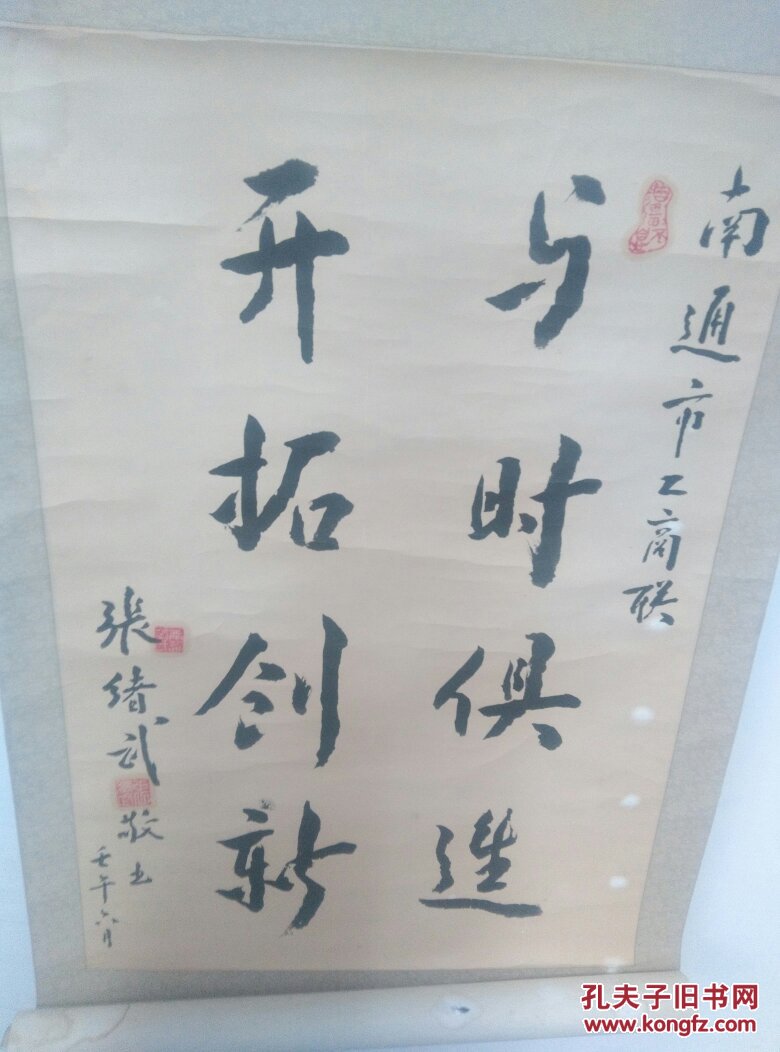 南通市工商联
与时俱進
开拓创新
張绪武敬书
壬午六月
孔夫子旧书网
www.kongfz.com